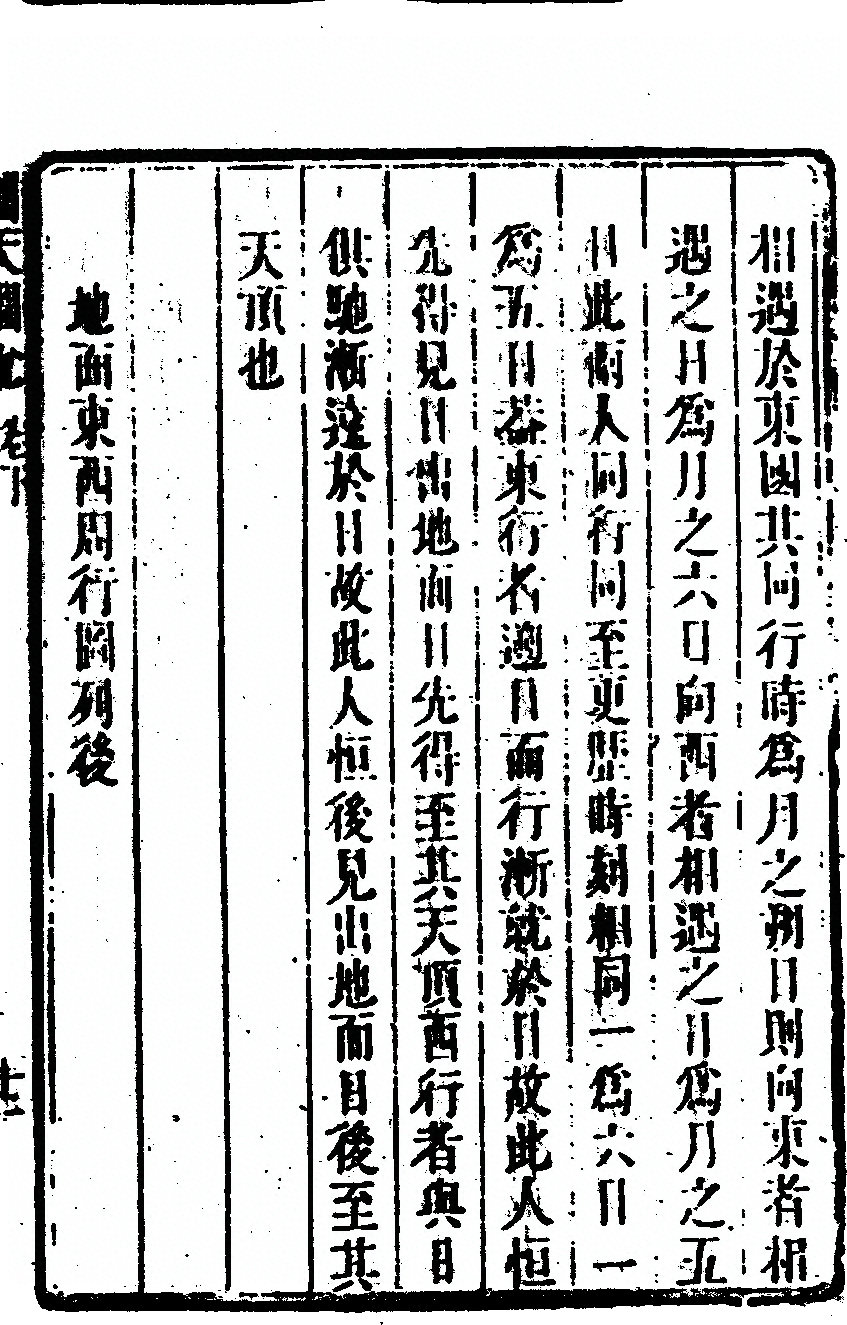 相遇於東國共同行時爲月之朔日則向東者相
遇之日爲月之六日向西者相遇之日爲月之五
日此兩人同行同至更歷時刻相同一爲六日一
爲五日葢東行者遡日面行漸就於日故此人恒
先得見日出地面日先得至其天頂西行者與日
俱馳漸違於日故此人恒後見出地面日後至其
天頂也
地面東西周行圖列後
天圖 卷下